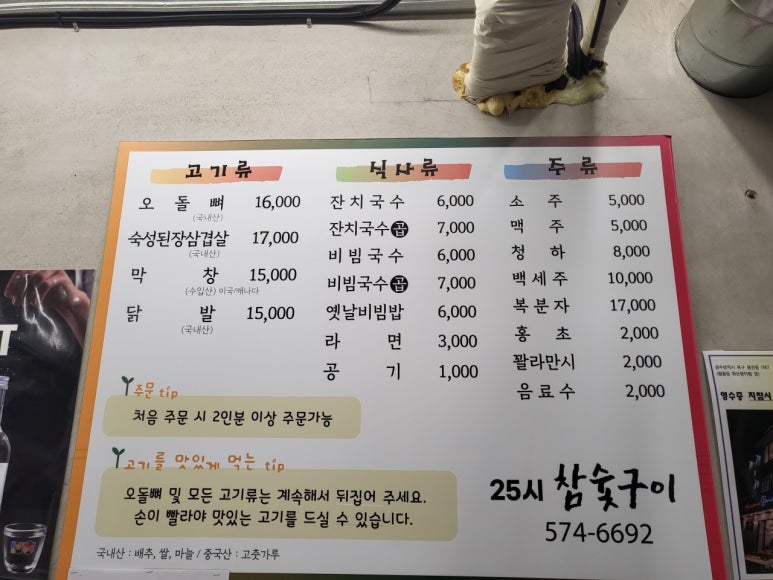 고기류
오돌뼈 16,000
(국내산)
숙성된장삼겹살 17,000
(국내산)
막창 15,000
(수입산) 미국/캐나다
닭발 15,000
(국내산)
식사류
잔치국수 6,000
잔치국수곱 7,000
비빔국수 6,000
비빔국수곱 7,000
옛날비빔밥 6,000
라면 3,000
공기 1,000
주류
소주 5,000
맥주 5,000
청하 8,000
백세주 10,000
복분자 17,000
홍초 2,000
꽐라만시 2,000
음료수 2,000
주문 tip
처음 주문 시 2인분 이상 주문가능
고기를 맛있게 먹는 tip
오돌뼈 및 모든 고기류는 계속해서 뒤집어 주세요.
손이 빨라야 맛있는 고기를 드실 수 있습니다.
국내산 : 배추, 쌀, 마늘 / 중국산 : 고춧가루
25시 참숯구이
574-6692
T